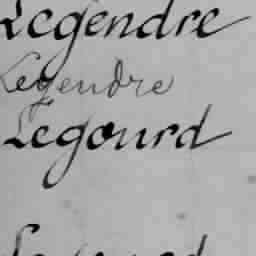 Legendre
Legendre
Legourd